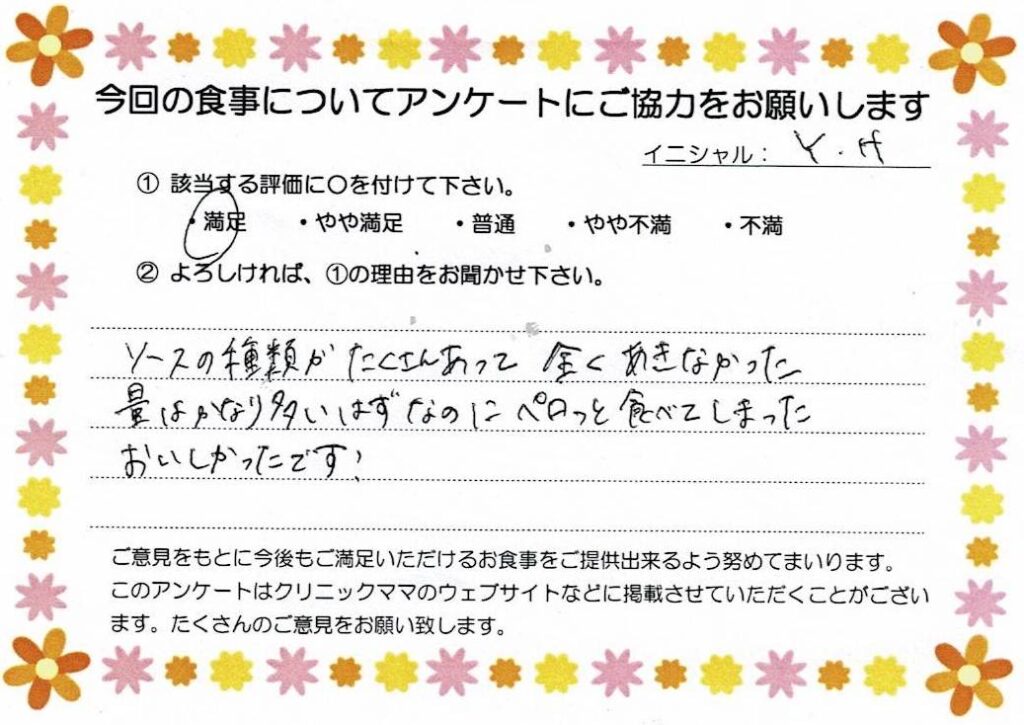 今回の食事についてアンケートにご協力をお願いします
イニシャル： Y.H
① 該当する評価に〇を付けて下さい。
・満足 ・やや満足 ・普通 ・やや不満 ・不満
② よろしければ、①の理由をお聞かせ下さい。
ソースの種類がたくさんあって 全くあきなかった
量はかなり多いはずなのに ペロっと食べてしまった
おいしかったです!
ご意見をもとに今後もご満足いただけるお食事をご提供出来るよう努めてまいります。
このアンケートはクリニックママのウェブサイトなどに掲載させていただくことがござい
ます。たくさんのご意見をお願い致します。